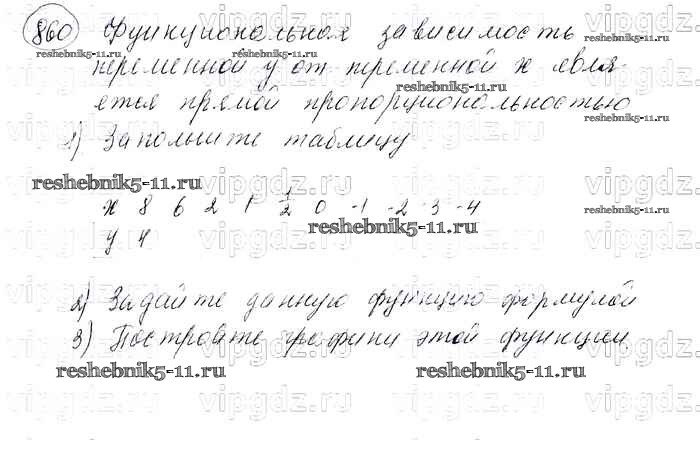 860 Функциональная зависимость
переменной у от переменной х явля-
ется прямой пропорциональностью
1) Заполните таблицу
х 8 6 2 1 1/2 0 -1 -2 -3 -4
у 4
2) Задайте данную функцию формулой
3) Постройте графики этой функции
reshebnik5-11.ru
vipgdz.ru